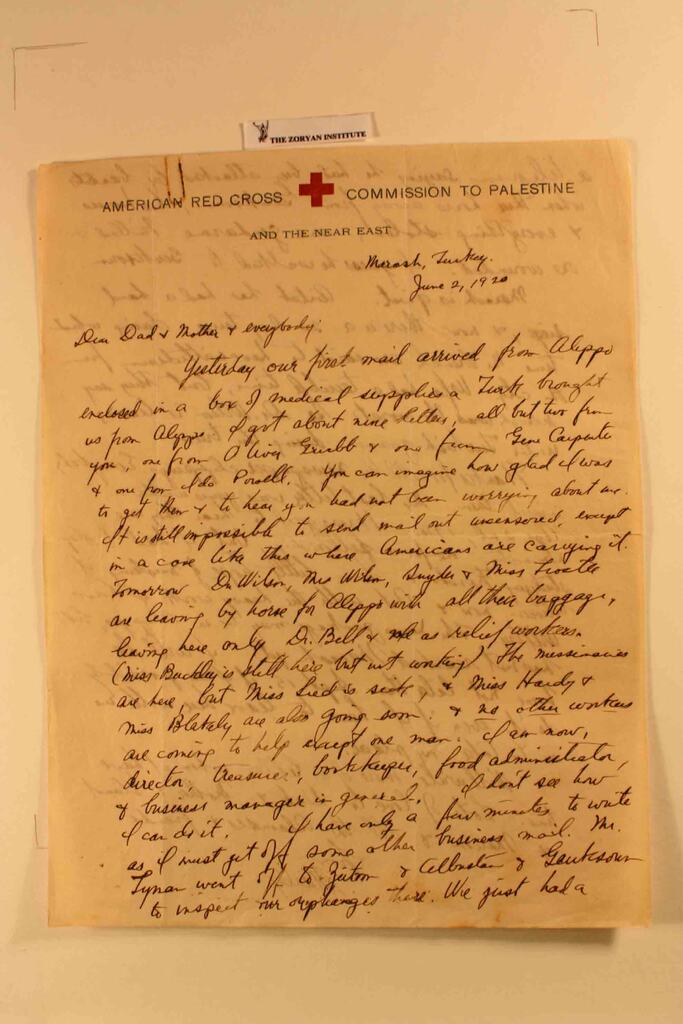 THE ZORYAN INSTITUTE
AMERICAN RED CROSS COMMISSION TO PALESTINE
AND THE NEAR EAST
Marash, Turkey.
June 2, 1920
Dear Dad & Mother & everybody:
Yesterday our first mail arrived from Aleppo
enclosed in a box of medical supplies a Turk brought
us from Aleppo. I got about nine letters, all but two from
you, one from Oliver & one from Gene Carpenter
& one from Ida Powell. You can imagine how glad I was
to get them & to hear you had not been worrying about me.
It is still impossible to send mail out uncensored, except
in a case like this where Americans are carrying it.
Tomorrow Dr Wilson, Mrs Wilson, Snyder & Miss
are leaving by horse for Aleppo with all their baggage,
leaving here only Dr. Bell & me as relief workers.
(Miss Buckley is still here but not working) The missionaries
are here, but Miss is sick, & Miss Hardy &
Miss Blakely are also going soon. & no other workers
are coming to help except one man. I am now,
director, treasurer, bookkeeper, food administrator,
& business manager in general. I don't see how
I can do it. I have only a few minutes to write
as I must get off some other business mail. Mr.
Lyman went off to Zeitoon & Albustan &
to inspect our orphanages there. We just had a